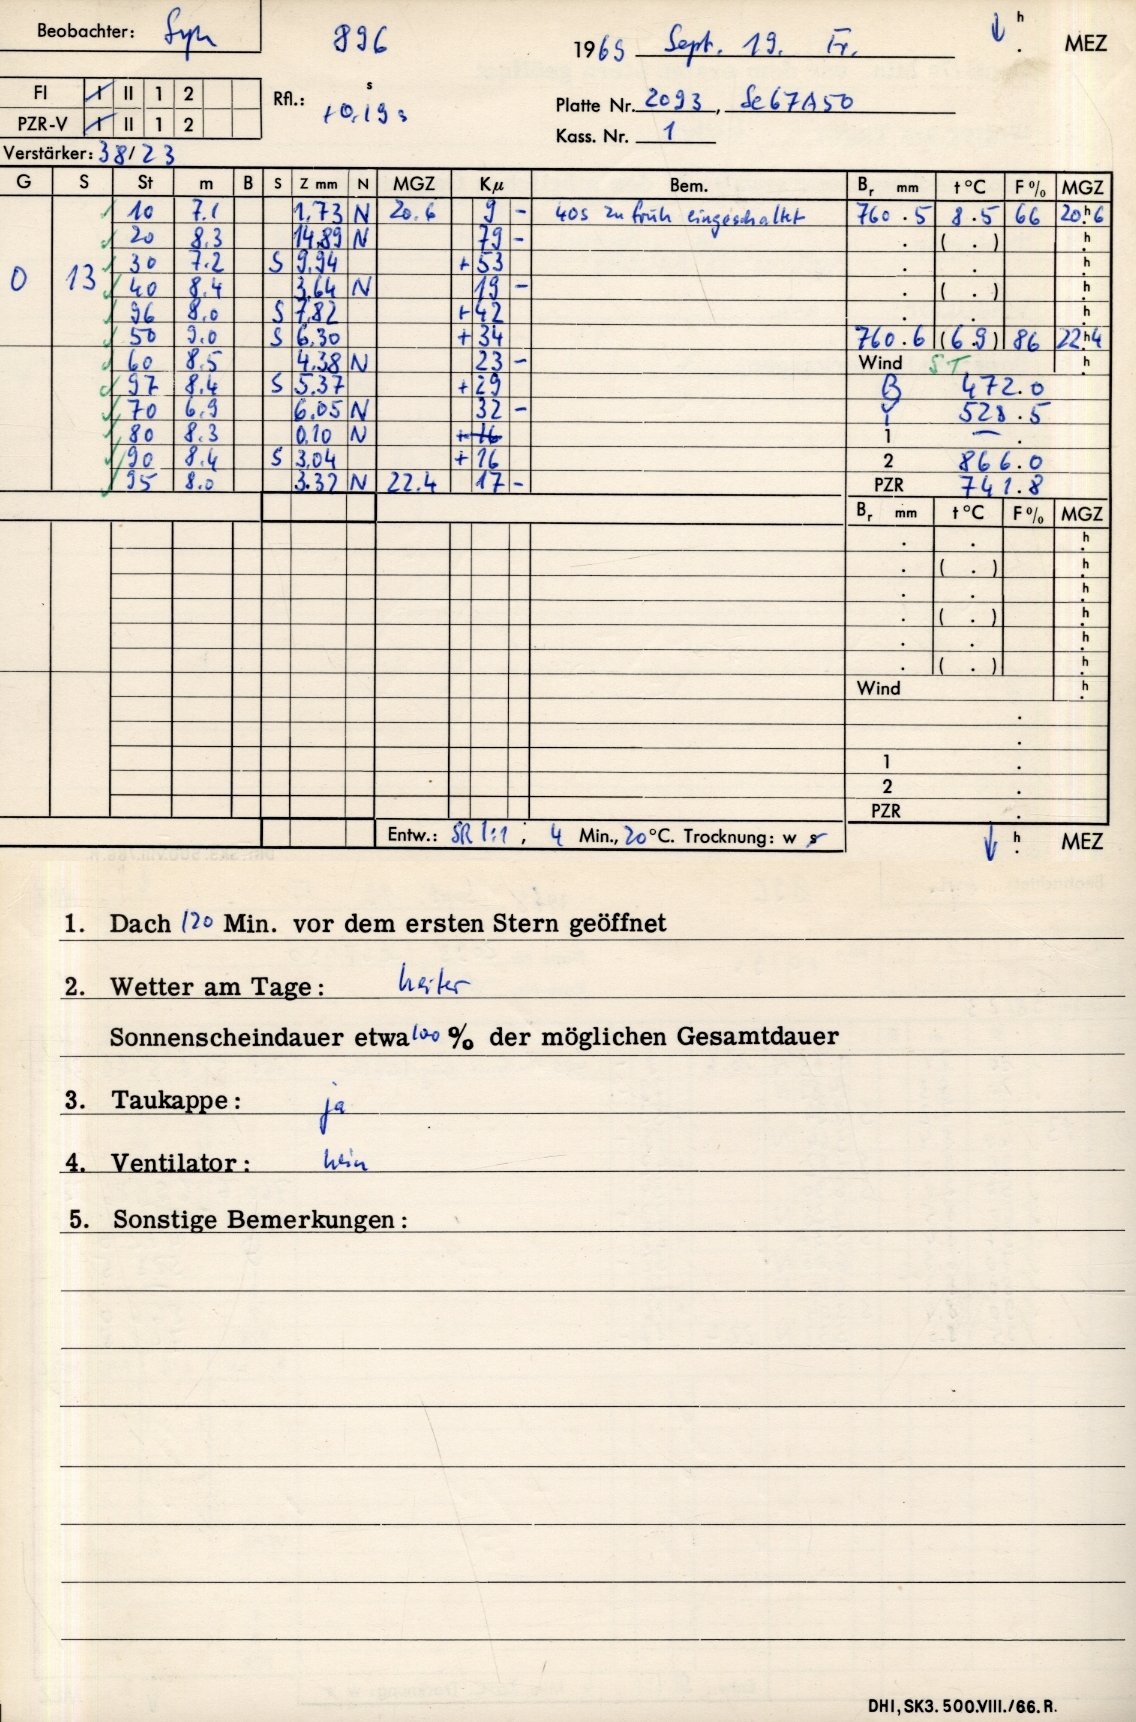 Beobachter:
896
1969 Sept. 19. Fr.
h
. MEZ
FI I II 1 2
PZR-V I II 1 2
Rfl.: s
+0.19s
Platte Nr. 2093, Sc67A50
Kass. Nr. 1
Verstärker: 38/23
G S St m B S Z mm N MGZ Kμ Bem. Br mm t°C F% MGZ
10 7.1 1.73 N 20.6 9 - 40s zu früh eingeschaltet 760.5 8.5 66 20h6
20 8.3 14.89 N 79 - . ( . ) h
30 7.2 S 9.94 + 53 . . h
0 13 40 8.4 3.64 N 19 - . ( . ) h
96 8.0 S 7.82 + 42 . . h
50 9.0 S 6.30 + 34 760.6 (6.9) 86 22h4
60 8.5 4.38 N 23 - Wind ST h
97 8.4 S 5.37 + 29 B 472.0
70 6.9 6.05 N 32 - 528.5
80 8.3 0.10 N 1 — .
90 8.4 S 3.04 + 16 2 866.0
95 8.0 3.32 N 22.4 17 - PZR 741.8
Br mm t°C F% MGZ
. . h
. ( . ) h
. . h
. ( . ) h
. . h
. ( . ) h
Wind h
.
.
1 .
2 .
PZR .
Entw.: SR 1:1 ; 4 Min., 20 °C. Trocknung: w s
h
. MEZ
1. Dach 120 Min. vor dem ersten Stern geöffnet
2. Wetter am Tage: heiter
Sonnenscheindauer etwa 100 % der möglichen Gesamtdauer
3. Taukappe: ja
4. Ventilator: nein
5. Sonstige Bemerkungen:
DHI, SK3. 500.VIII./66. R.